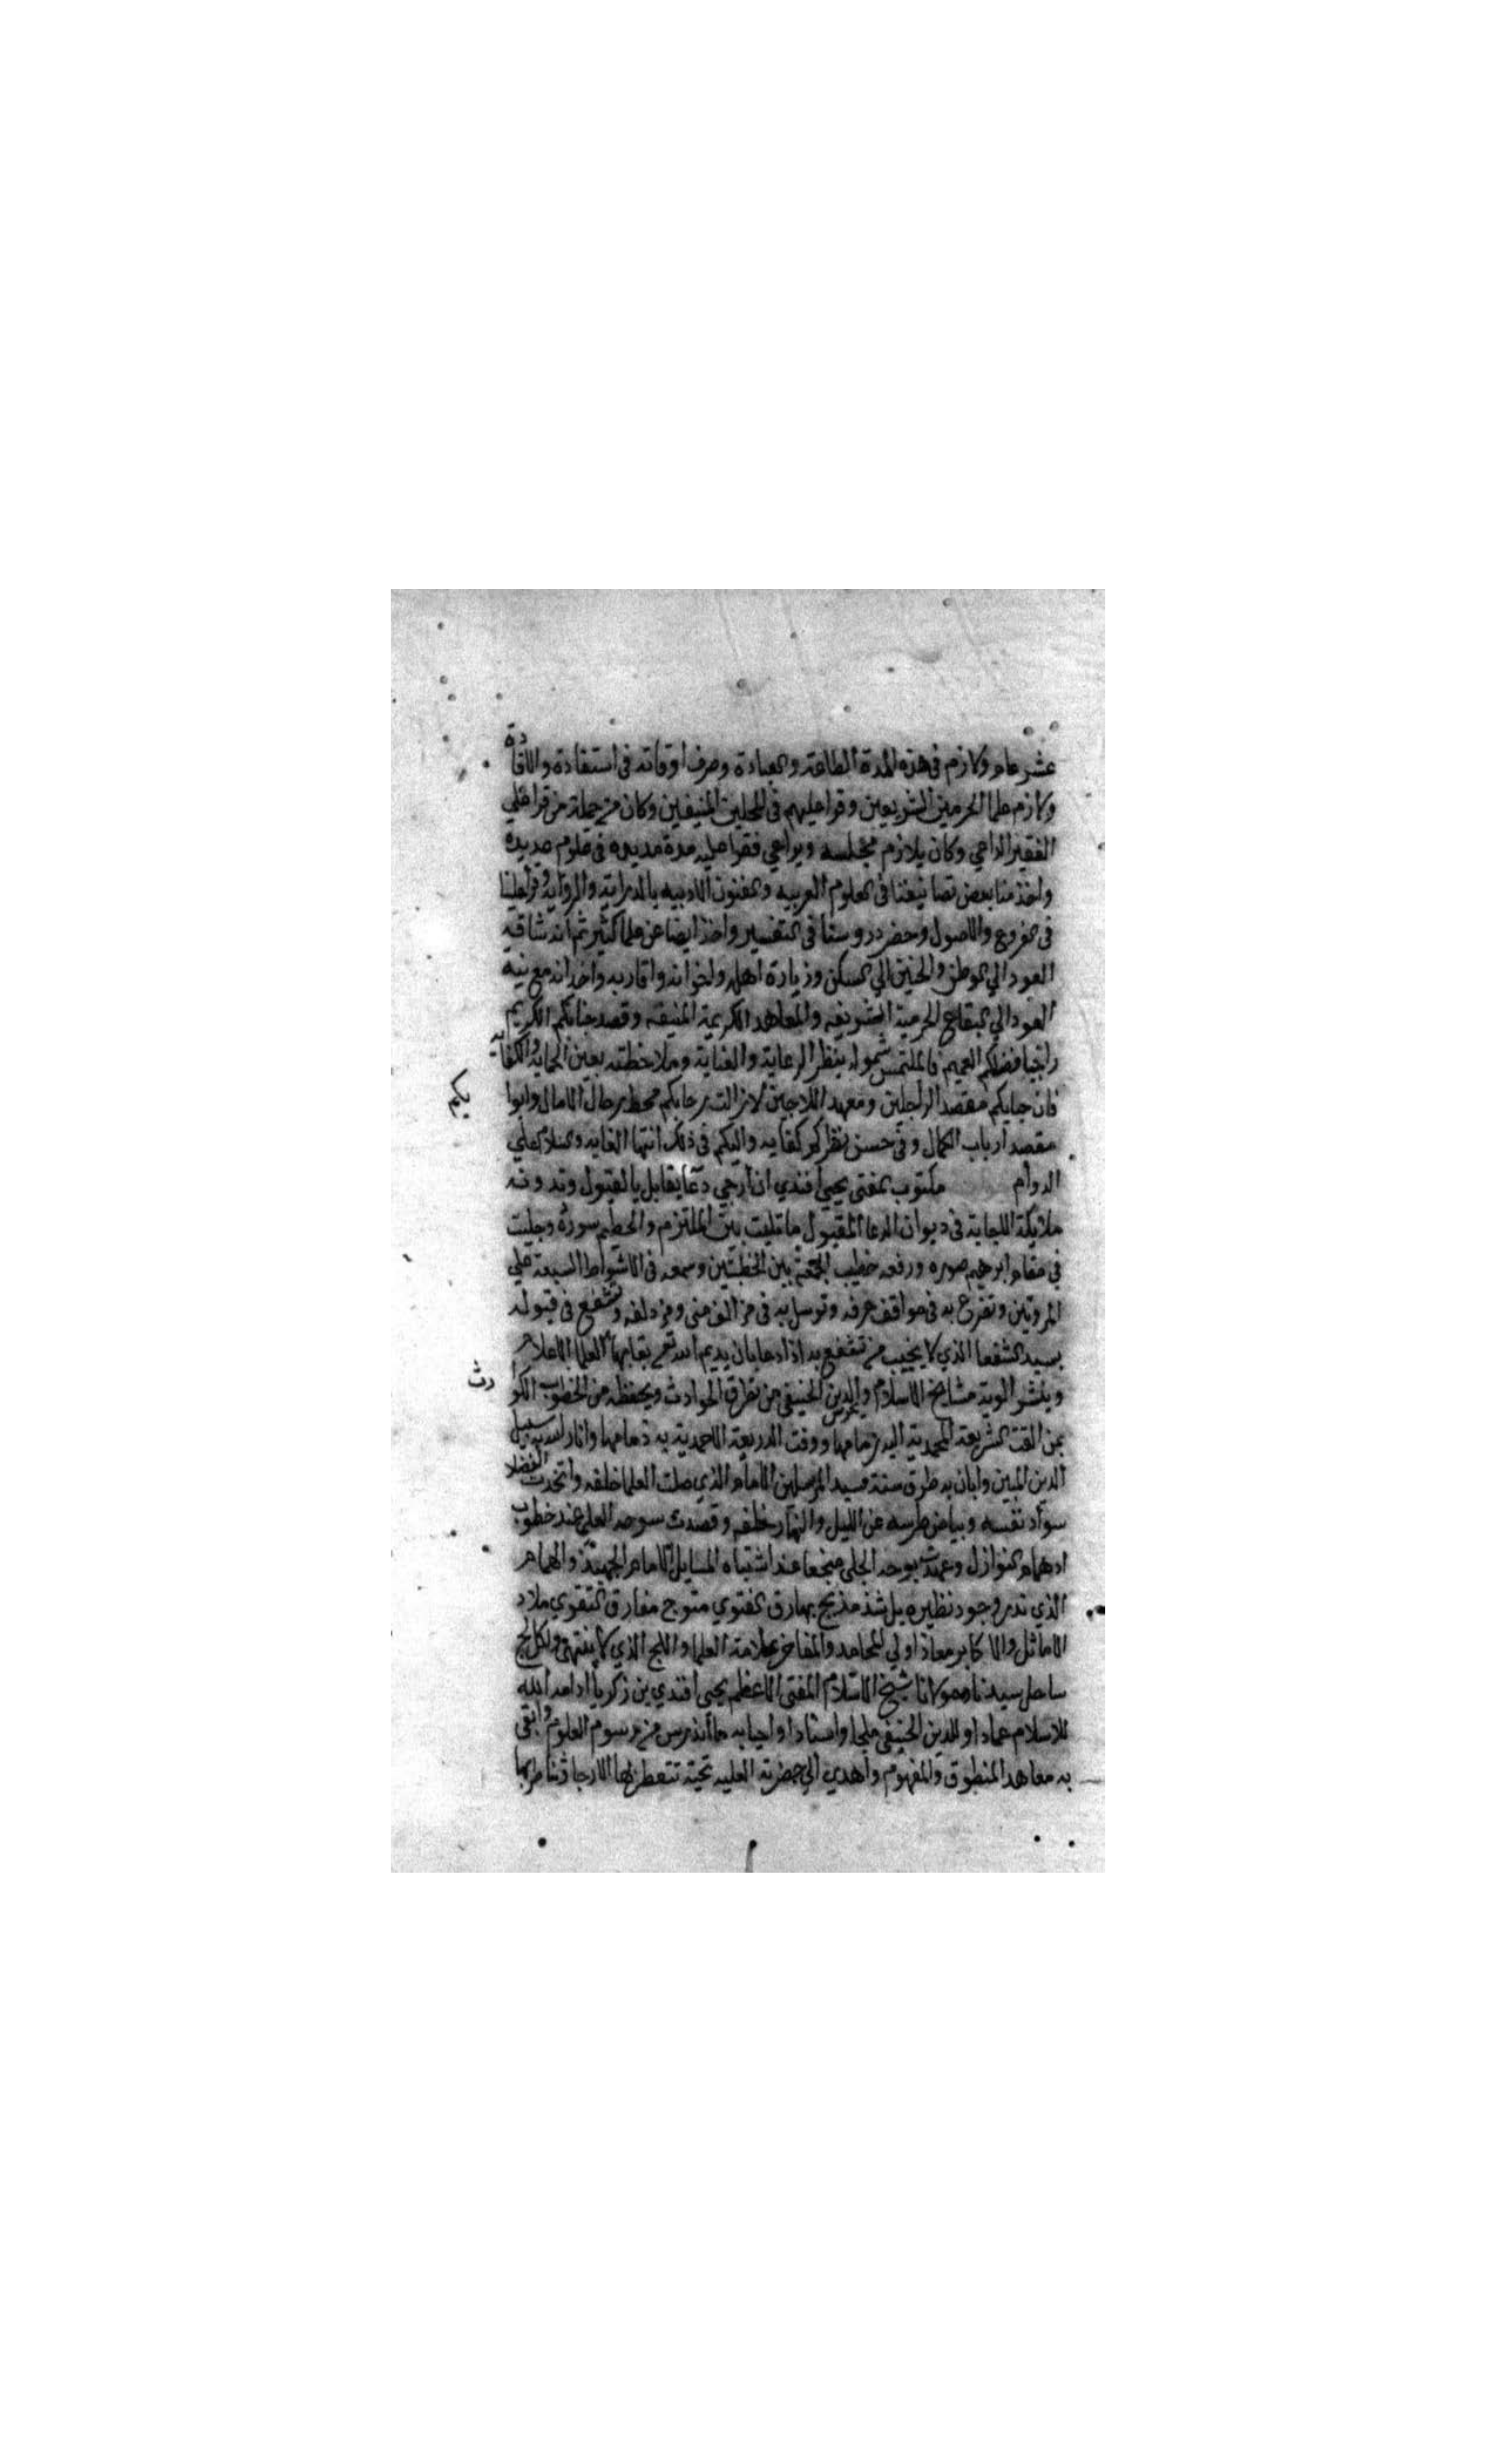 عشر عام ولازم في هذه المدة الطاعة والعبادة وصرف اوقاته في استفادة والافادة
ولازم علما الحرمين الشريفين وقرا عليهم في المحلين المنيفين وكان من جملة من قرا علي
الفقير الداعي وكان يلازم مجلسه ويراعي فقرا عليه مدة مديده في علوم عديدة
واخذ منا بعض تصانيفنا في العلوم العربيه والفنون الادبيه بالدراية والرواية وقرا علينا
في الفروع والاصول وحضر دروسنا في التفسير واخذ ايضا عن علما كثير ثم انه شاقه
العود الي الوطن والحنين الي السكن وزيارة اهله واخوانه واقاربه واخدانه مع نية
العود الي البقاع الحرمية الشريفه والمعاهد الكريمة المنيفه وقصد جنابكم الكريم
راجيا فضلكم العميم فالملتمس شموله بنظر الرعاية والعناية وملاحظته بعين الحماية والكفاية
فان جنابكم مقصد الراجلين ومعهد اللاجين لازالت رحابكم محط رحال الامال وابوابكم
مقصد ارباب الكمال وفي حسن نظركم كفايه واليكم في ذلك انتها الغايه والسلام علي
الدوام مكتوب لمفتي يحيى افندي ان ارجي دعا يقابل بالقبول وتدونه
ملايكة الاجابة في ديوان الدعا المقبول ما تليت بين الملتزم والحطيم سوره وجليت
في مقام ابرهيم صوره ورفعه خطيب الجمعة بين الخطبتين وسمعه في الاشواط السبعة علي
المروتين وتضرع به في مواقف عرفه وتوسل به في مزالف منى ومزدلفه وتشفع في قبوله
بسيد الشفعا الذي لا يخيب من تشفع به اذا دعا بان يديم الله تعالى بقابها العلما الاعلام
وينشر الوية مشايخ الاسلام والدين الحنيفي من تطرق الحوادث ويحفظه من الخطوب الكوارث
بمن القت الشريعة المحمدية اليه زمامها ووفت الذريعة الاحمدية به ذمامها وانار الله به سبيل
الدين المبين وابان به طرق سنة سيد المرسلين الامام الذي صلت العلما خلفه واتخذت الفضلا
سواد نفسه وبياض طرسه عن الليل والنهار خلفه وقصدت سوحه العلي عند خطوب
ادهام النوازل وعهدت بوحه الجلي منجعا عند اشتباه المسايل الامام الجهبذ والهمام
الذي ندر وجود نظيره بل شذ مذبج بهارق الفتوي متوج مفارق التقوي ملاذ
الاماثل والاكابر معاذ اولي المحامد والمفاخر علامة العلما واللج الذي لا ينتهي ولكل لج
ساحل سيدنا ومولانا شيخ الاسلام المفتي الاعظم يحيى افندي بن زكريا ادامه الله
للاسلام عمادا وللدين الحنيفي ملجا واسنادا واحيا به ما اندرس من رسوم العلوم وابقى
به معاهد المنطوق والمفهوم واهدي الي حضرته العليه تحية تتعطر بها الارجا